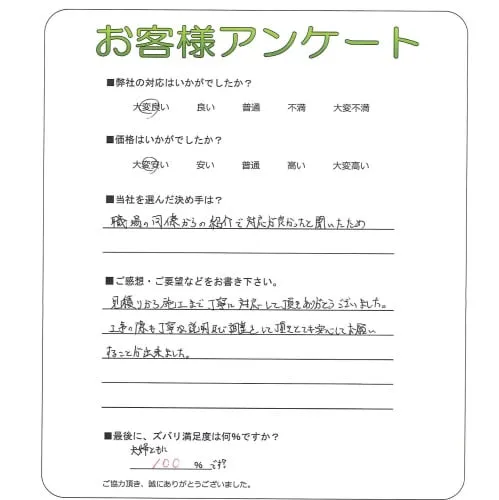 お客様アンケート
■弊社の対応はいかがでしたか？
大変良い 良い 普通 不満 大変不満
■価格はいかがでしたか？
大変安い 安い 普通 高い 大変高い
■当社を選んだ決め手は？
職場の同僚からの紹介で対応が良かったと聞いたため
■ご感想・ご要望などをお書き下さい。
見積りから施工まで丁寧に対応して頂きありがとうございました。
工事の際も丁寧な説明及び調整をして頂きとても安心してお願い
することが出来ました。
■最後に、ズバリ満足度は何%ですか？
夫婦ともに
100 % です?
ご協力頂き、誠にありがとうございました。